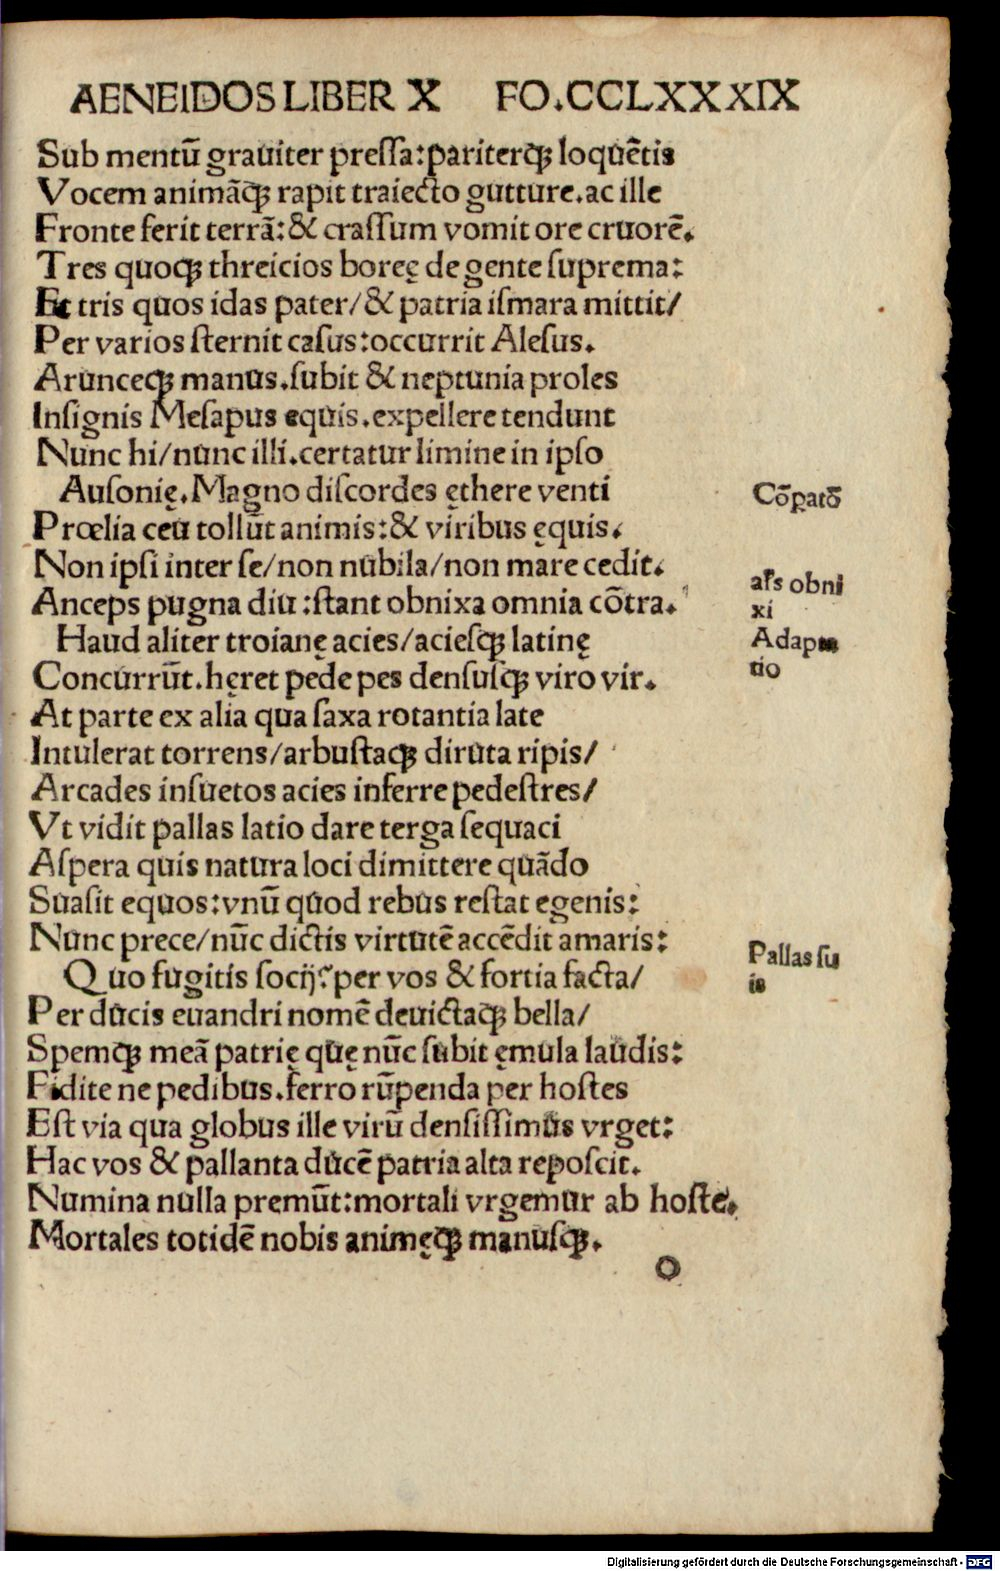 AENEIDOS LIBER X FO.CCLXXXIX
Sub mentū grauiter pressa:pariterqꝫ loquētis
Vocem animāqꝫ rapit traiecto gutture.ac ille
Fronte ferit terrā:& crassum vomit ore cruorē.
Tres quoqꝫ threicios boreę de gente suprema:
Et tris quos idas pater/& patria ismara mittit/
Per varios sternit casus:occurrit Alesus.
Arunceqꝫ manus.subit & neptunia proles
Insignis Mesapus equis.expellere tendunt
Nunc hi/nunc illi.certatur limine in ipso
Ausonię.Magno discordes ęthere venti
Cōꝑatō
Prœlia ceu tollūt animis:& viribus ęquis.
Non ipsi inter se/non nubila/non mare cedit.
Anceps pugna diu:stant obnixa omnia cōtra.
al's obni
xi
Haud aliter troianę acies/aciesqꝫ latinę
Adapta
tio
Concurrūt.hęret pede pes densusqꝫ viro vir.
At parte ex alia qua saxa rotantia late
Intulerat torrens/arbustaqꝫ diruta ripis/
Arcades insuetos acies inferre pedestres/
Vt vidit pallas latio dare terga sequaci
Aspera quis natura loci dimittere quādo
Suasit equos:vnū quod rebus restat egenis:
Nunc prece/nūc dictis virtutē accēdit amaris:
Quo fugitis socij?per vos & fortia facta/
Pallas su
is
Per ducis euandri nomē deuictaqꝫ bella/
Spemqꝫ meā patrię quę nūc subit ęmula laudis:
Fidite ne pedibus.ferro rūpenda per hostes
Est via qua globus ille virū densissimus vrget:
Hac vos & pallanta ducē patria alta reposcit.
Numina nulla premūt:mortali vrgemur ab hoste.
Mortales totidē nobis animęqꝫ manusqꝫ.
O
Digitalisierung gefördert durch die Deutsche Forschungsgemeinschaft - DFG